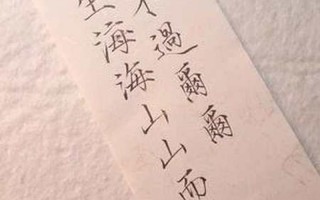 生海海山山而
不過爾爾